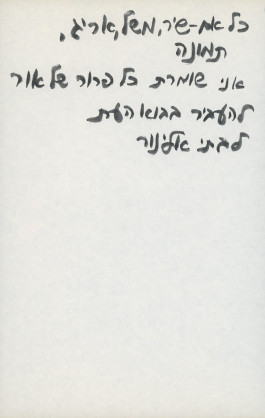 כל אם-שיר, משל, אריג,
תמונה
אני שומרת כל פרור של אור
להעביר בבוא העת
לבתי אלינור